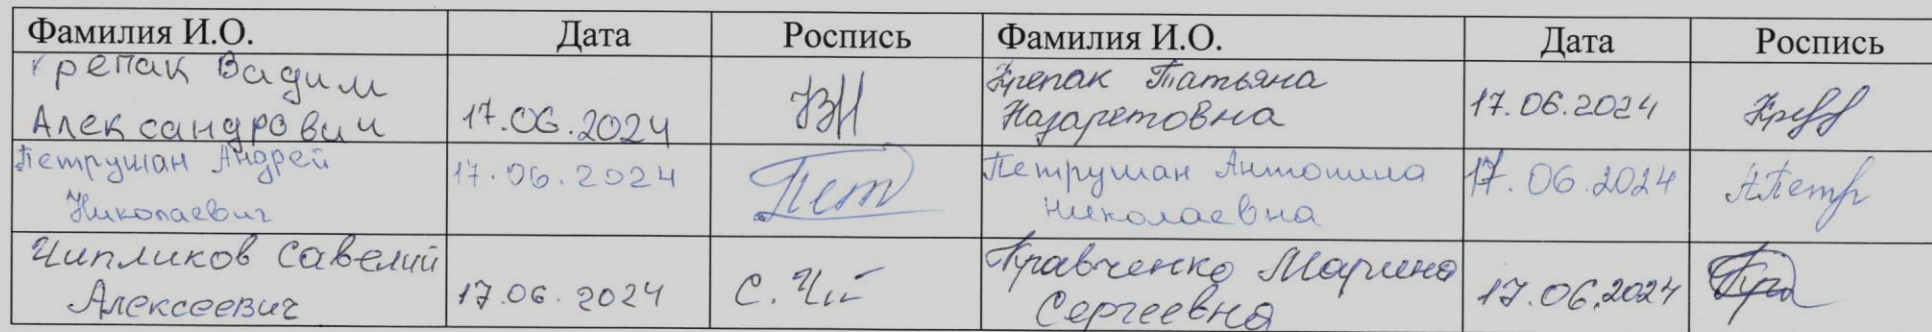 Фамилия И.О. Дата Роспись Фамилия И.О. Дата Роспись
Крепак Вадим
Александрович 17.06.2024
Крепак Татьяна
Назаретовна 17.06.2024
Петрушан Андрей
Николаевич 17.06.2024 Пет
Петрушан Антонина
Николаевна 17.06.2024 АПетр
Чипликов Савелий
Алексеевич 17.06.2024
Кравченко Марина
Сергеевна 17.06.2024